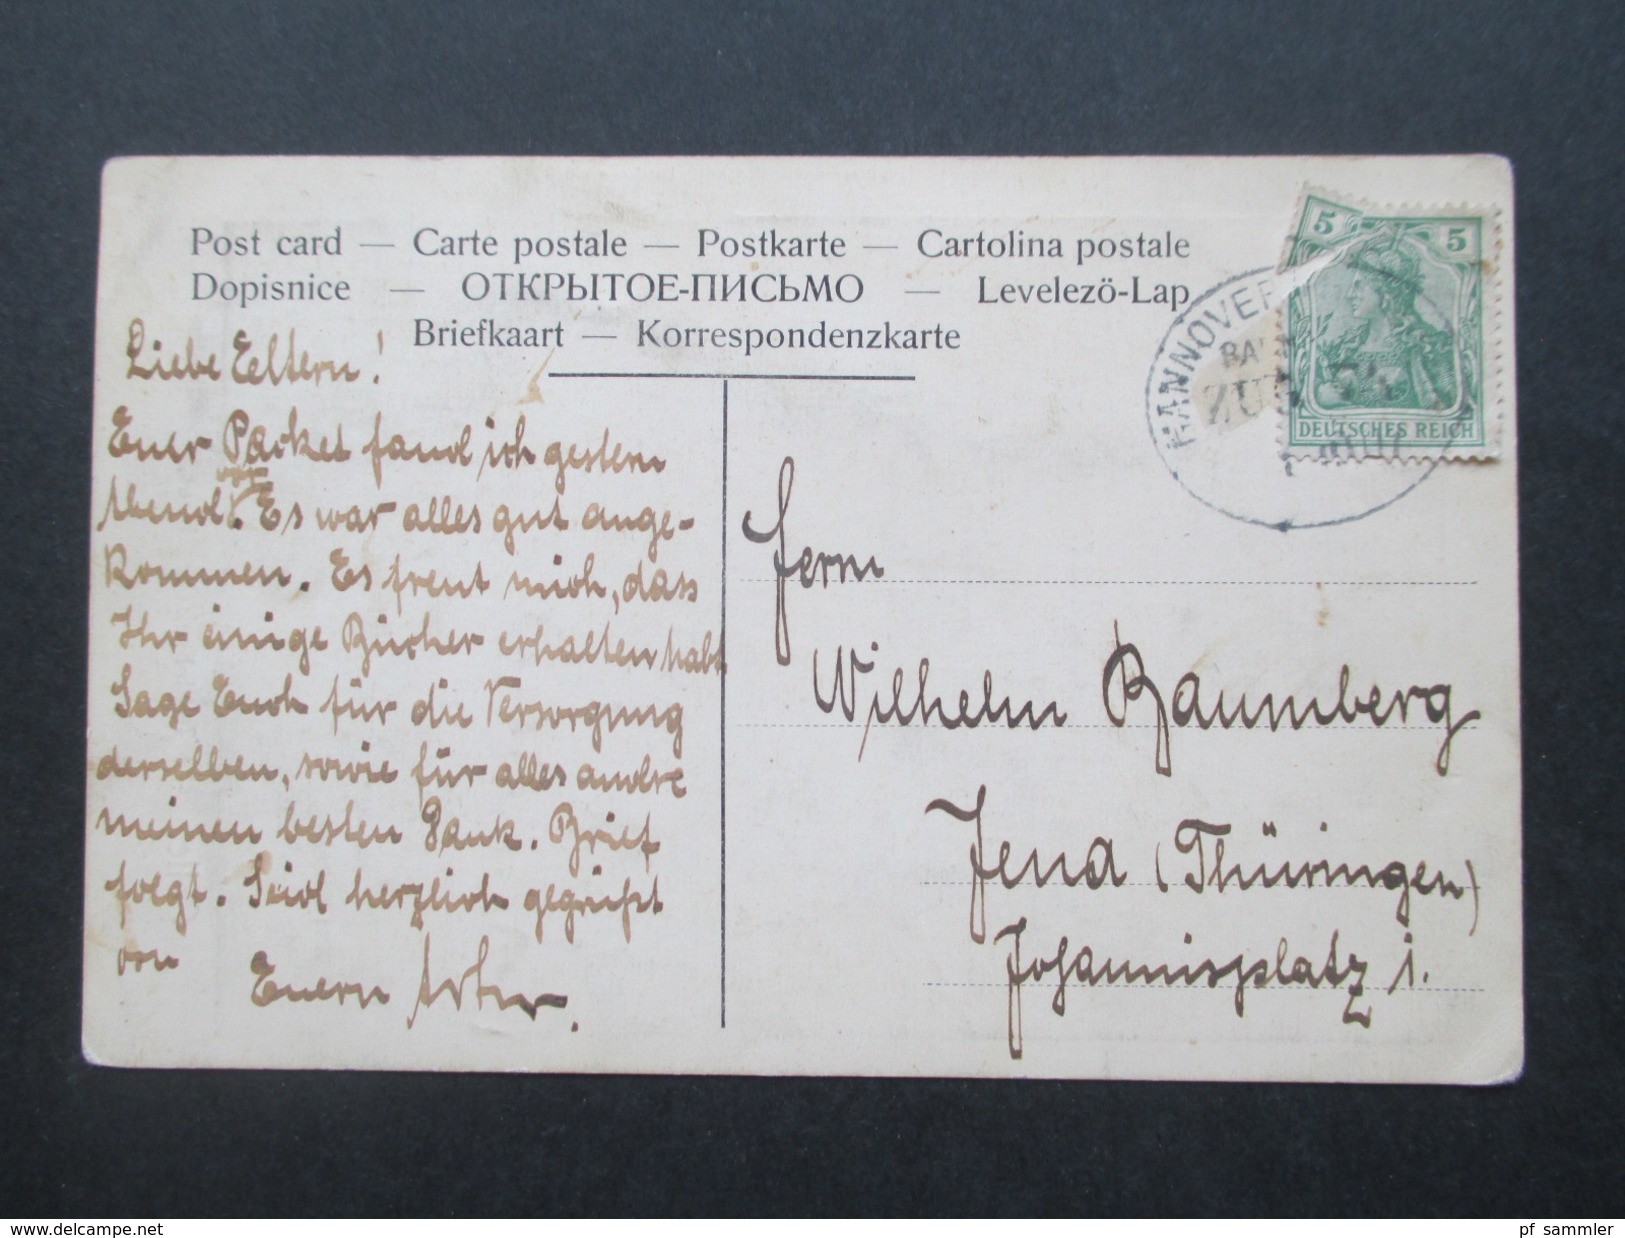 Post card — Carte postale — Postkarte — Cartolina postale
Dopisnice — ОТКРЫТОЕ-ПИСЬМО — Levelezö-Lap
Briefkaart — Korrespondenzkarte
Liebe Eeltern!
Euer Packet fand ich gestern
Abend vor. Es war alles gut ange-
kommen. Es freut mich, dass
Ihr einige Bücher erhalten habt
Sage Euch für die Versorgung
derselben, sowie für alles andre
meinen besten Dank. Brief
folgt. Seid herzlich gegrüßt
von Euern
5 5
DEUTSCHES REICH
HANNOVER
ZUG
Herrn
Wilhelm Baumberg
Jena (Thüringen)
Johannisplatz 1.
www.delcampe.net
pf_sammler